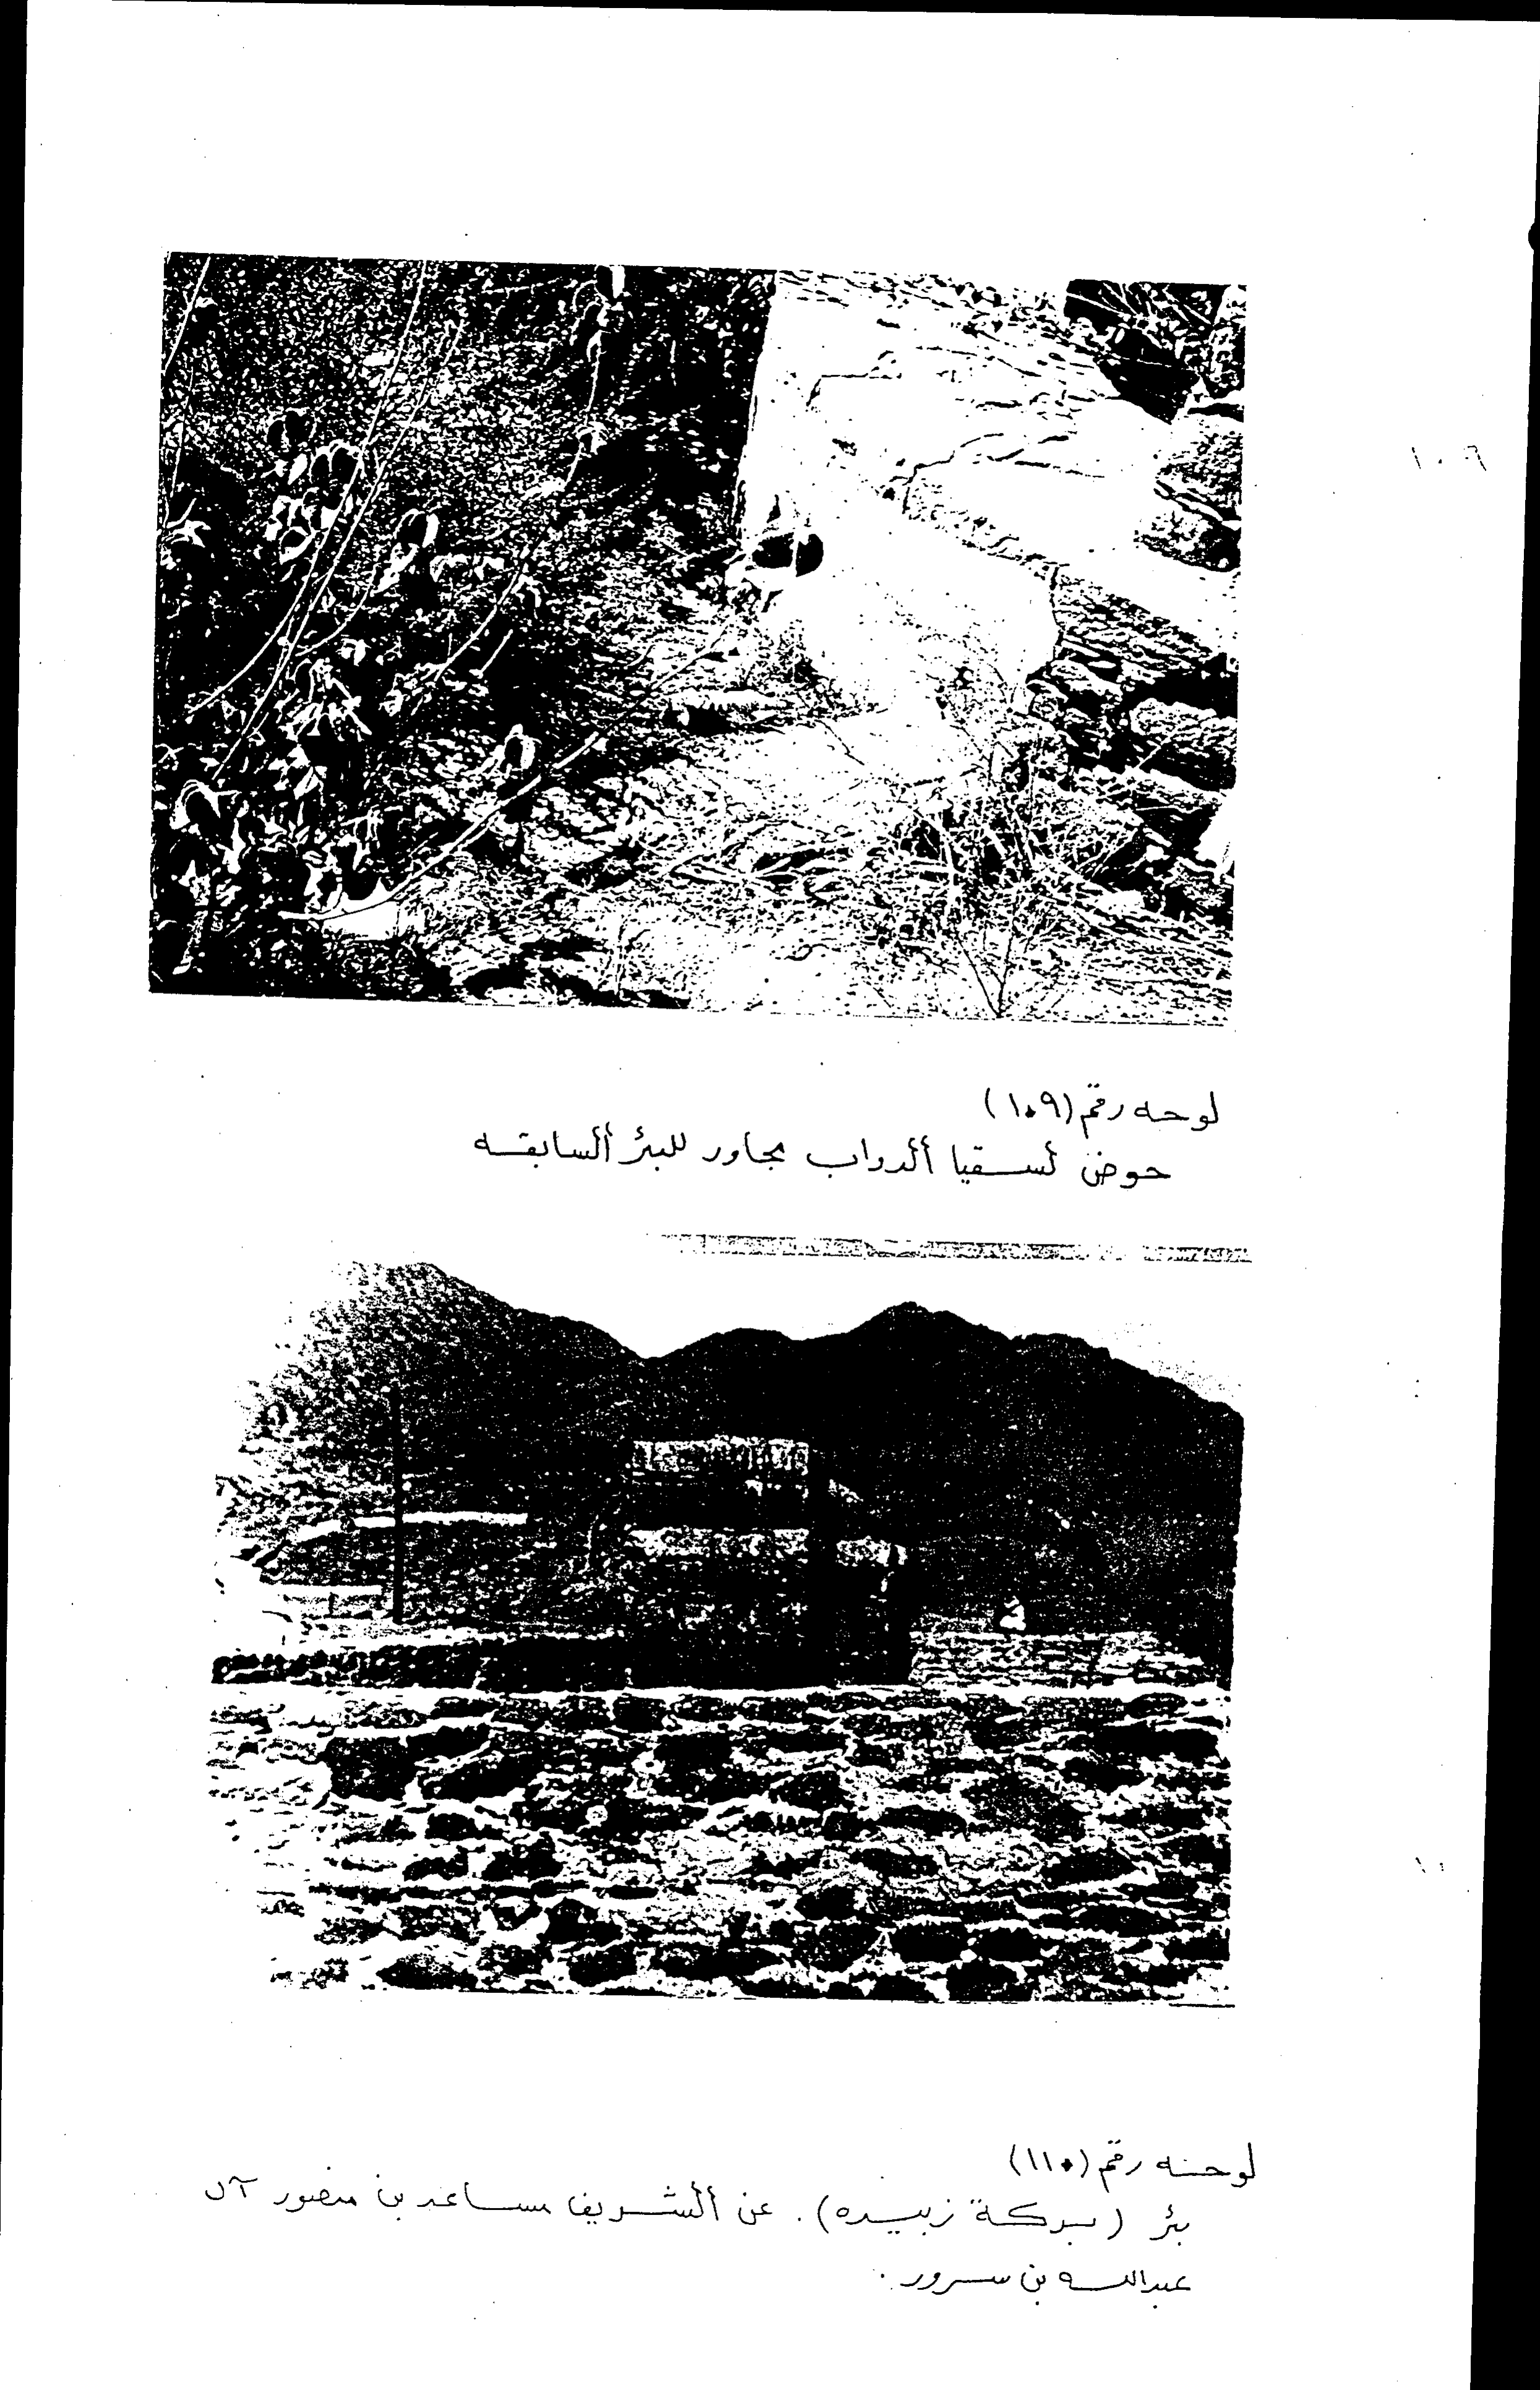 ١٠٩
لوحه رقم (١٠٩)
حوض لسقيا الدواب مجاور للبئر السابقه
لوحه رقم (١١٠)
بئر (بركة زبيده). عن الشريف مساعد بن منصور آل
عبدالله بن سرور.